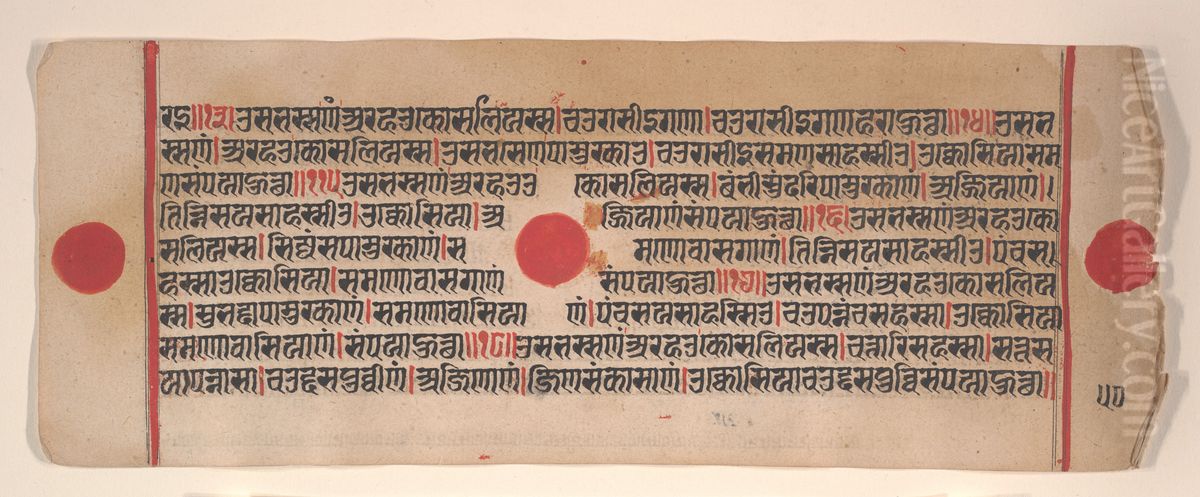 रइ॥१३॥उसभस्सणंअरहउकोसलियस्स|चउरासीइगणा|चउरासीइगणहराहुत्था॥१४॥उसभ
स्सणं|अरहउकोसलियस्स|उसभसेणपामुरकाउ|चउरासीइसमणसाहस्सीउ|उक्कोसियासम
णसंपयाहुत्था॥११५उसभस्सणंअरहउउ कोसलियस्स|बंभीसुंदरिपामुरकाणं|अज्जियाणं|।
तिन्निसयसाहस्सीउ|उक्कोसिया|अ ज्जियाणंसंपयाहुत्था॥१६॥उसभस्सणंअरहउको
सलियस्स|सिज्जंसपामुरकाणं|स मणोवासगाणं|तिन्निसयसाहस्सीउ|पंचस।
हस्साउक्कोसिया|समणोवासगाणं संपयाहुत्था॥१७॥उसभस्सणंअरहउकोसलिय
स्स|सुभद्दापामुरकाणं|समणोवासिया णं|पंचसयसाहस्सिउ|चउपन्नंचसहस्सा|उक्कोसिया
समणोवासियाणं|संपयाहुत्था॥१८॥उसभस्सणंअरहउकोसलियस्स|चत्तारिसहस्सा|सत्तस
यापन्नासा|चउद्दसपुव्वीणं|अजिणाणं|जिणसंकासाणं|उक्कोसियाचउद्दसपुव्विसंपयाहुत्था॥
५०
NiceArtGallery.com